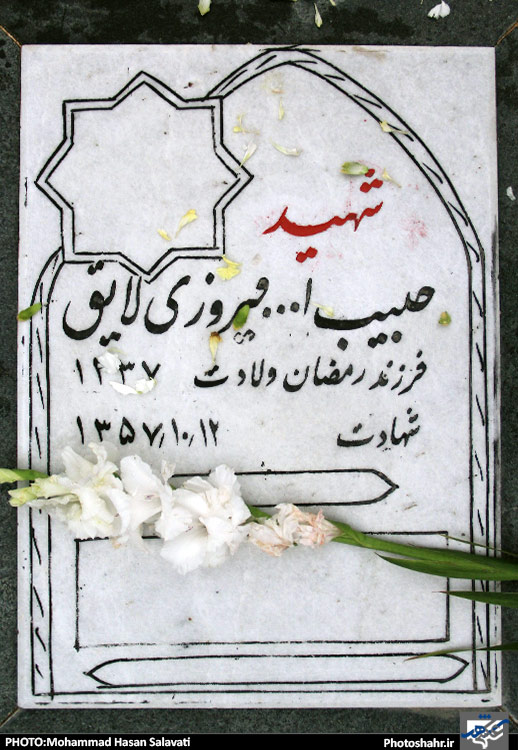 شهید
حبیب ا... فیروزی لایق
فرزند رمضان ولادت ۱۳۳۷
شهادت ۱۳۵۷/۱۰/۱۲
PHOTO:Mohammad Hasan Salavati
Photoshahr.ir